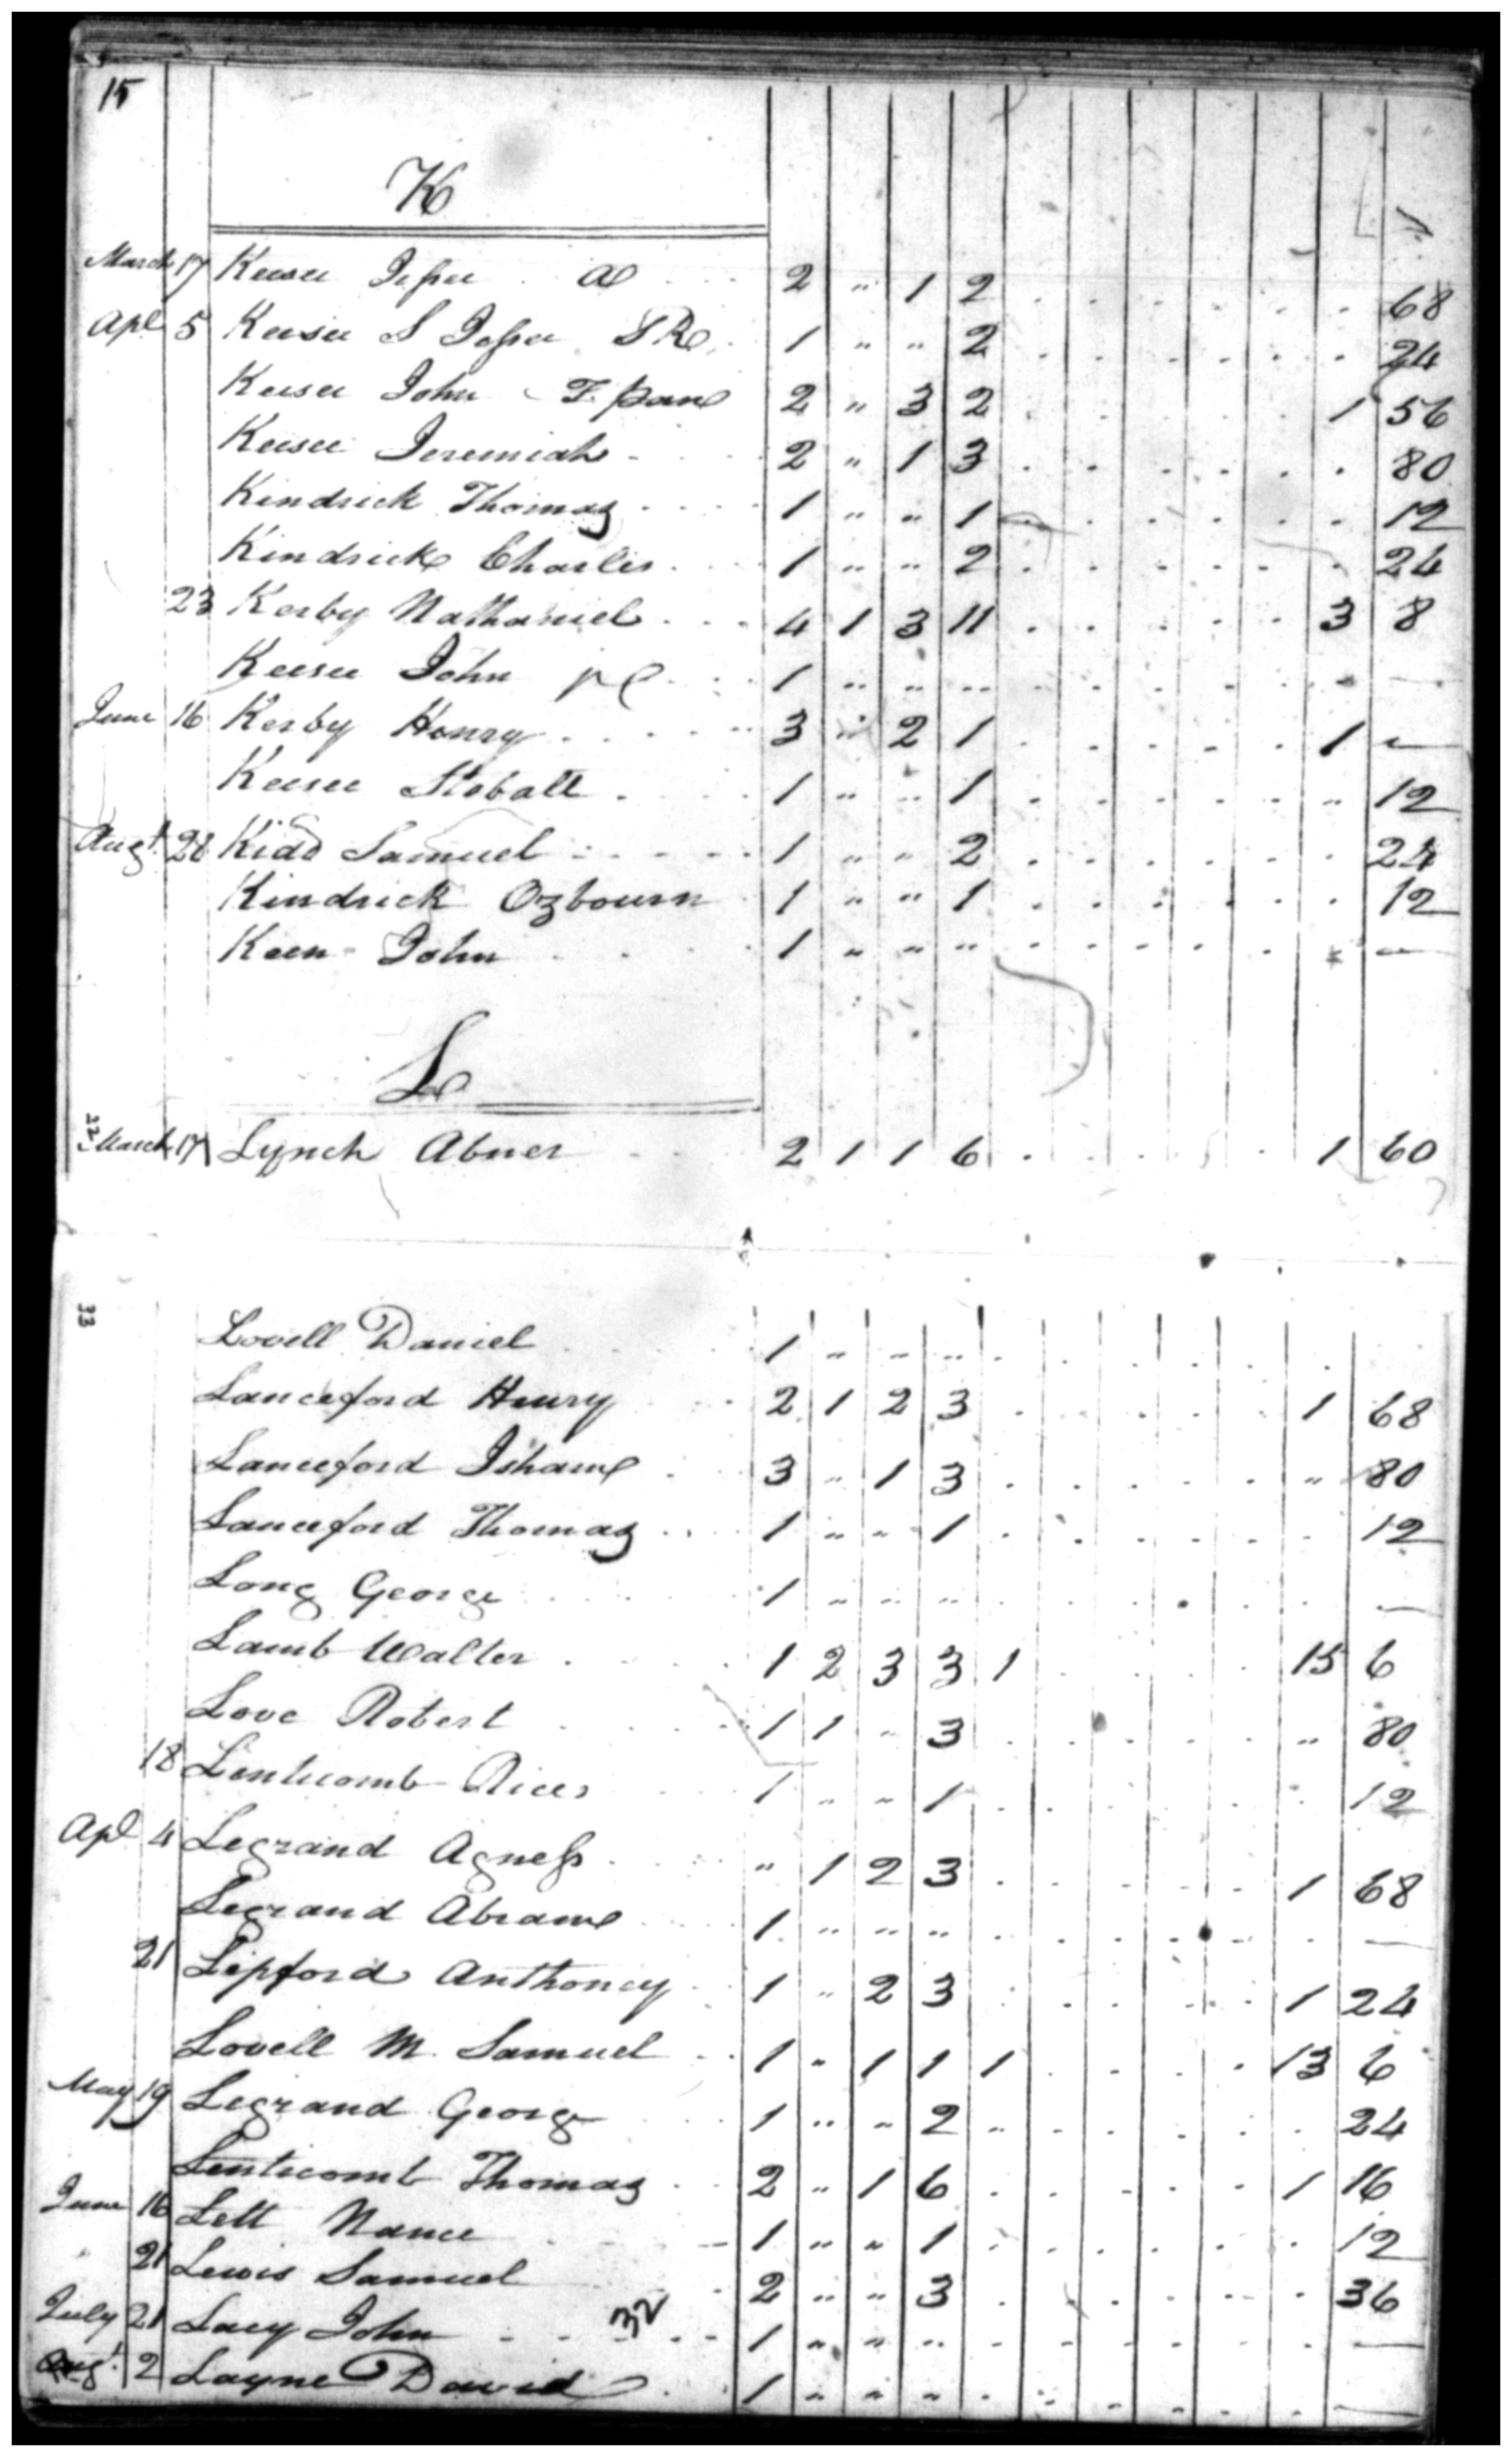 15
K
March 17 Keesee Jesse a 2 " 1 2 . . . . . . 68
Apl 5 Keesee S Jesse SR 1 " " 2 . . . . . . 24
Keesee John F. pan 2 " 3 2 . . . . . 1 56
Keesee Jeremiah 2 " 1 3 . . . . . . 80
Kindrick Thomas 1 " " 1 . . . . . . 12
Kindrick Charles 1 " " 2 . . . . . . 24
23 Kerby Nathaniel 4 1 3 11 . . . . . 3 8
Keesee John 1 " " " . . . . . . —
June 16 Kerby Henry 3 " 2 1 . . . . . 1 —
Keesee Stoball 1 " " 1 . . . . . " 12
Augt. 28 Kidd Samuel 1 " " 2 . . . . . . 24
Kindrick Ozbourn 1 " " 1 . . . . . . 12
Keen John 1 " " " . . . . . —
L
22
March 17 Lynch Abner 2 1 1 6 . . . . . 1 60
33
Lovell Daniel 1 " " " . . . . . .
Lanceford Henry 2 1 2 3 . . . . . 1 68
Lanceford Isham 3 " 1 3 . . . . . " 80
Lanceford Thomas 1 " " 1 . . . . . . 12
Long George 1 " " " . . . . . . —
Lamb Walter 1 2 3 3 1 . . . . 15 6
Love Robert 1 1 " 3 . . . . . " 80
18 Lenticomb Rice 1 " " 1 . . . . . . 12
Apl 4 Legrand Agness " 1 2 3 . . . . . 1 68
Legrand Abram 1 " " " . . . . . . —
21 Lipford Anthoney 1 " 2 3 . . . . . 1 24
Lovell M. Samuel 1 " 1 1 1 . . . . 13 6
May 19 Legrand George 1 " " 2 " . . . . . 24
Lenticomb Thomas 2 " 1 6 . . . . . 1 16
June 16 Lett Nance 1 " " 1 . . . . . . 12
21 Lewis Samuel 2 " " 3 . . . . . . 36
July 21 Lacy John 32 1 " " " . . . . . . —
Augt. 2 Layne David 1 " " " . . . . . . —